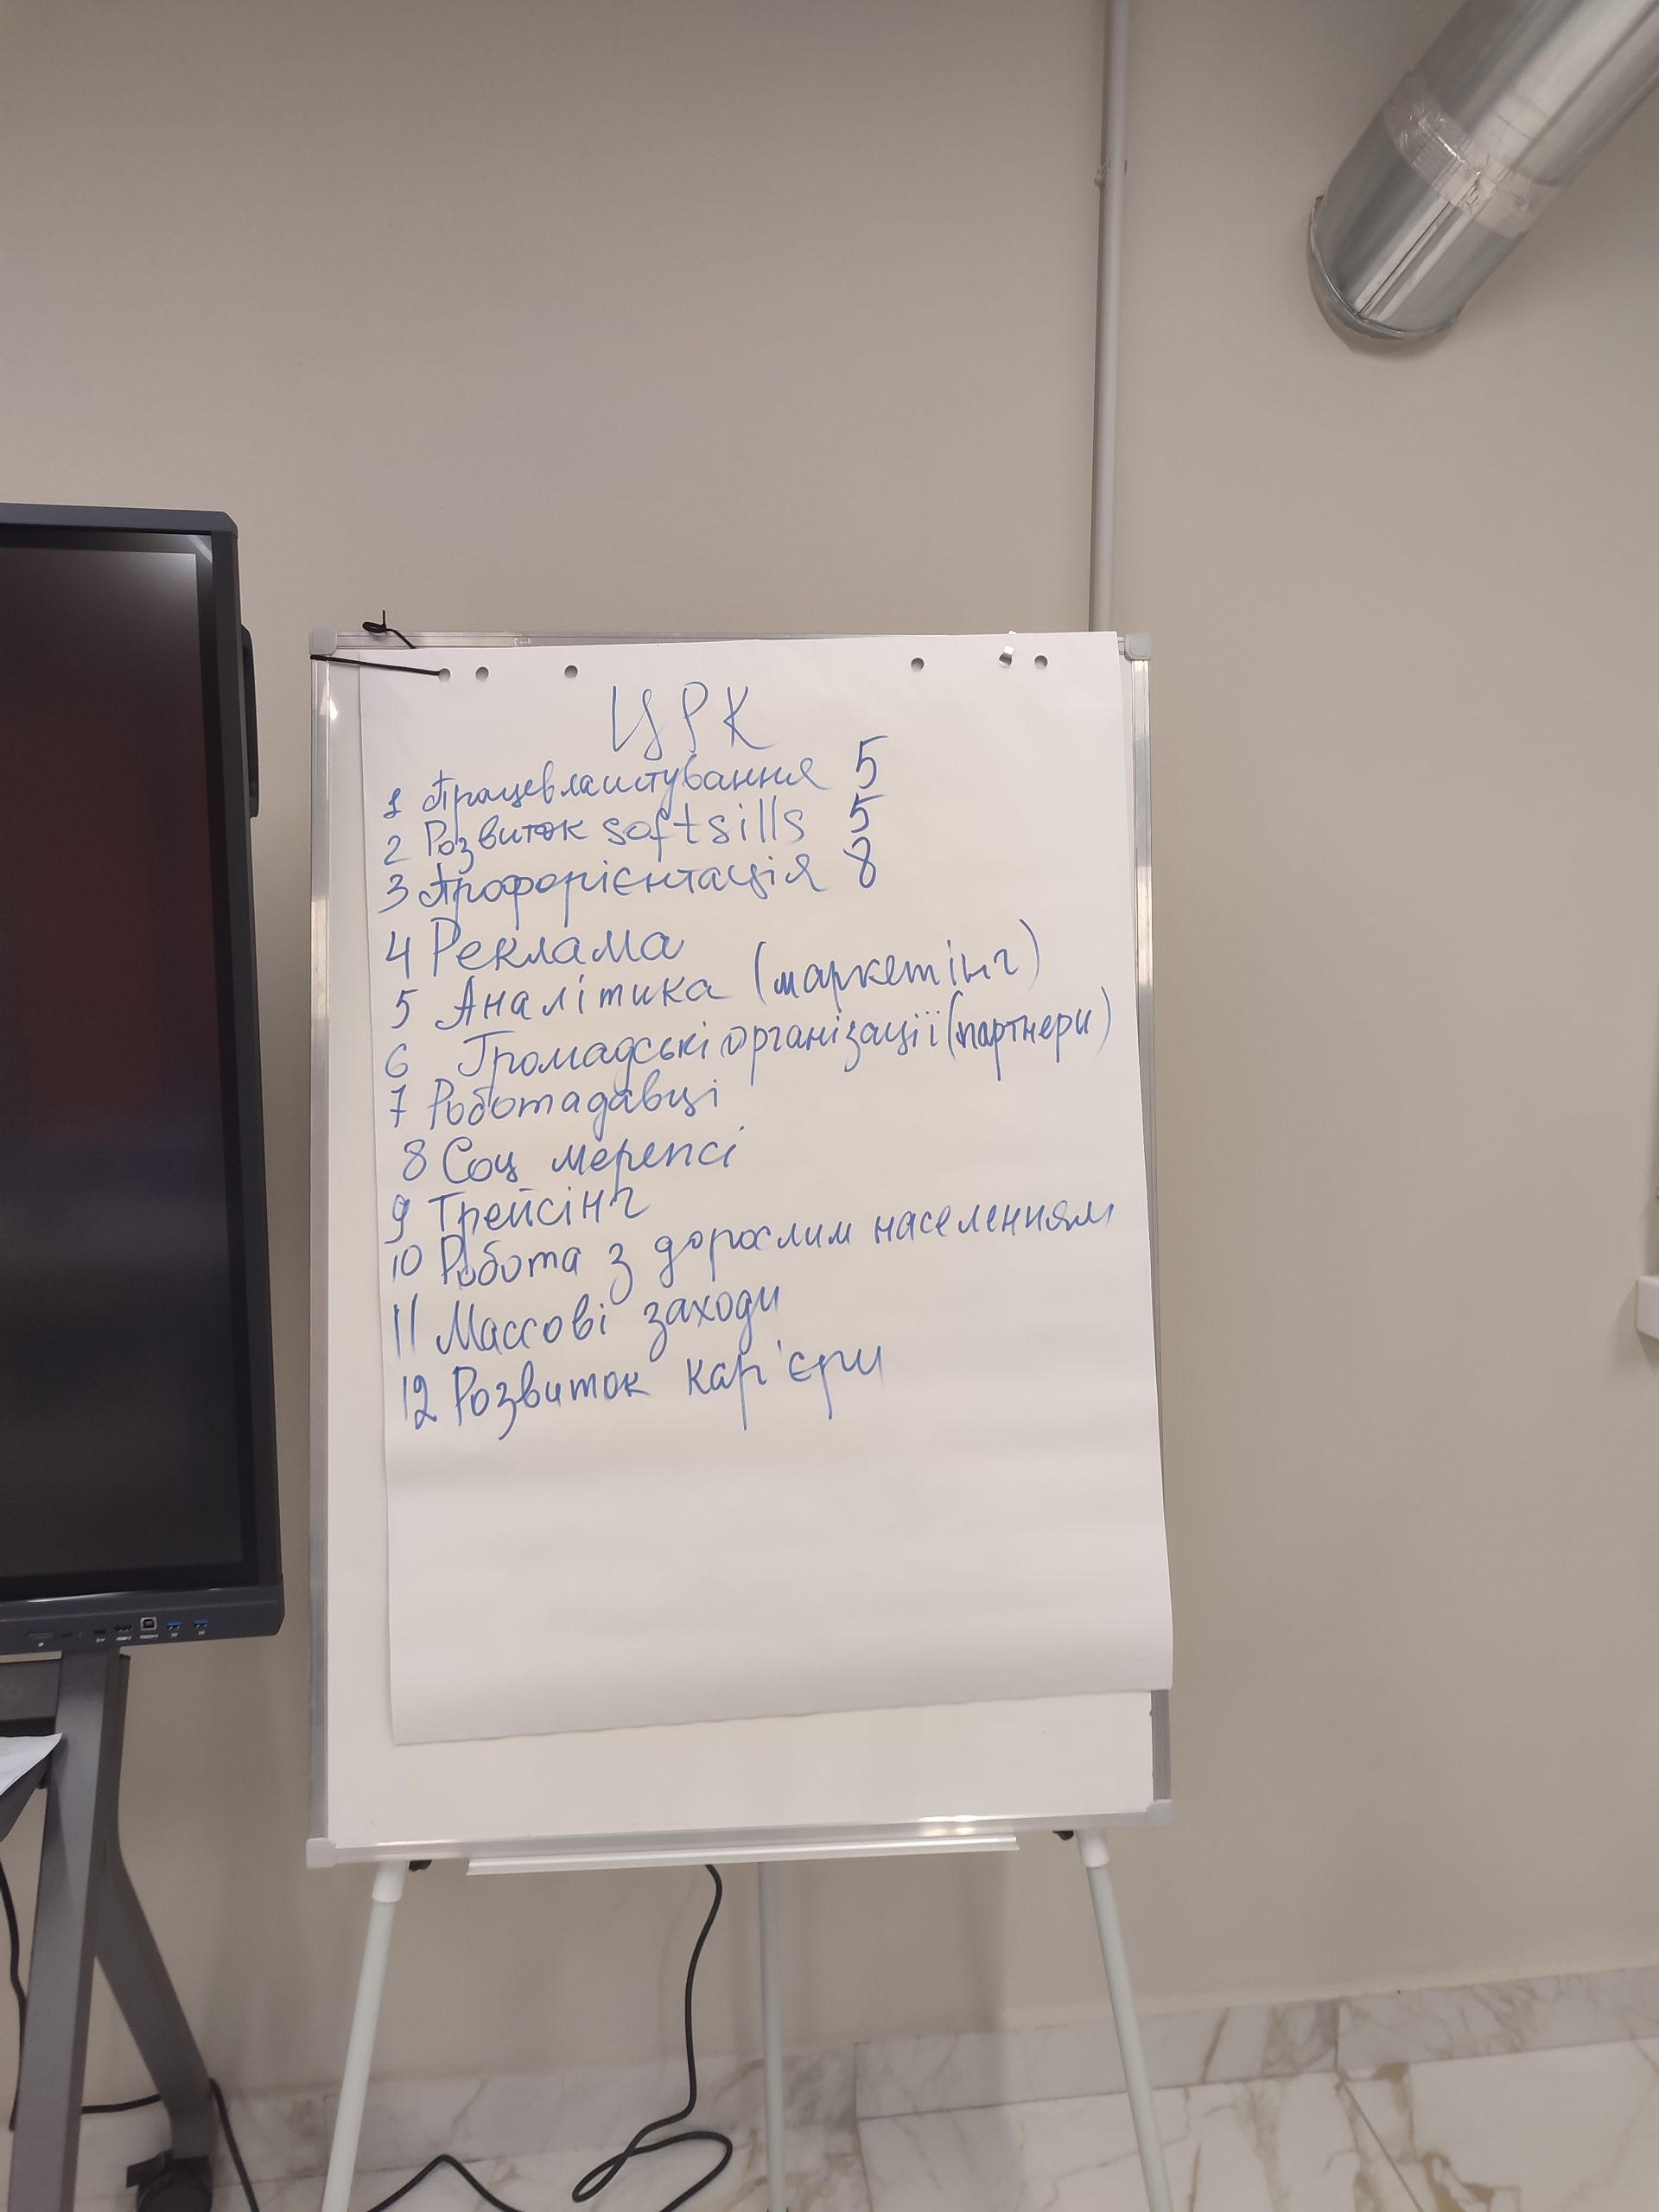 ЦРК
1 Працевлаштування 5
2 Розвиток softsills 5
3 Профорієнтація 8
4 Реклама
5 Аналітика (маркетінг)
6 Громадські організації (партнери)
7 Роботадавці
8 Соц мережі
9 Трейсінг
10 Робота з дорослим населенням
11 Массові заходи
12 Розвиток кар'єри